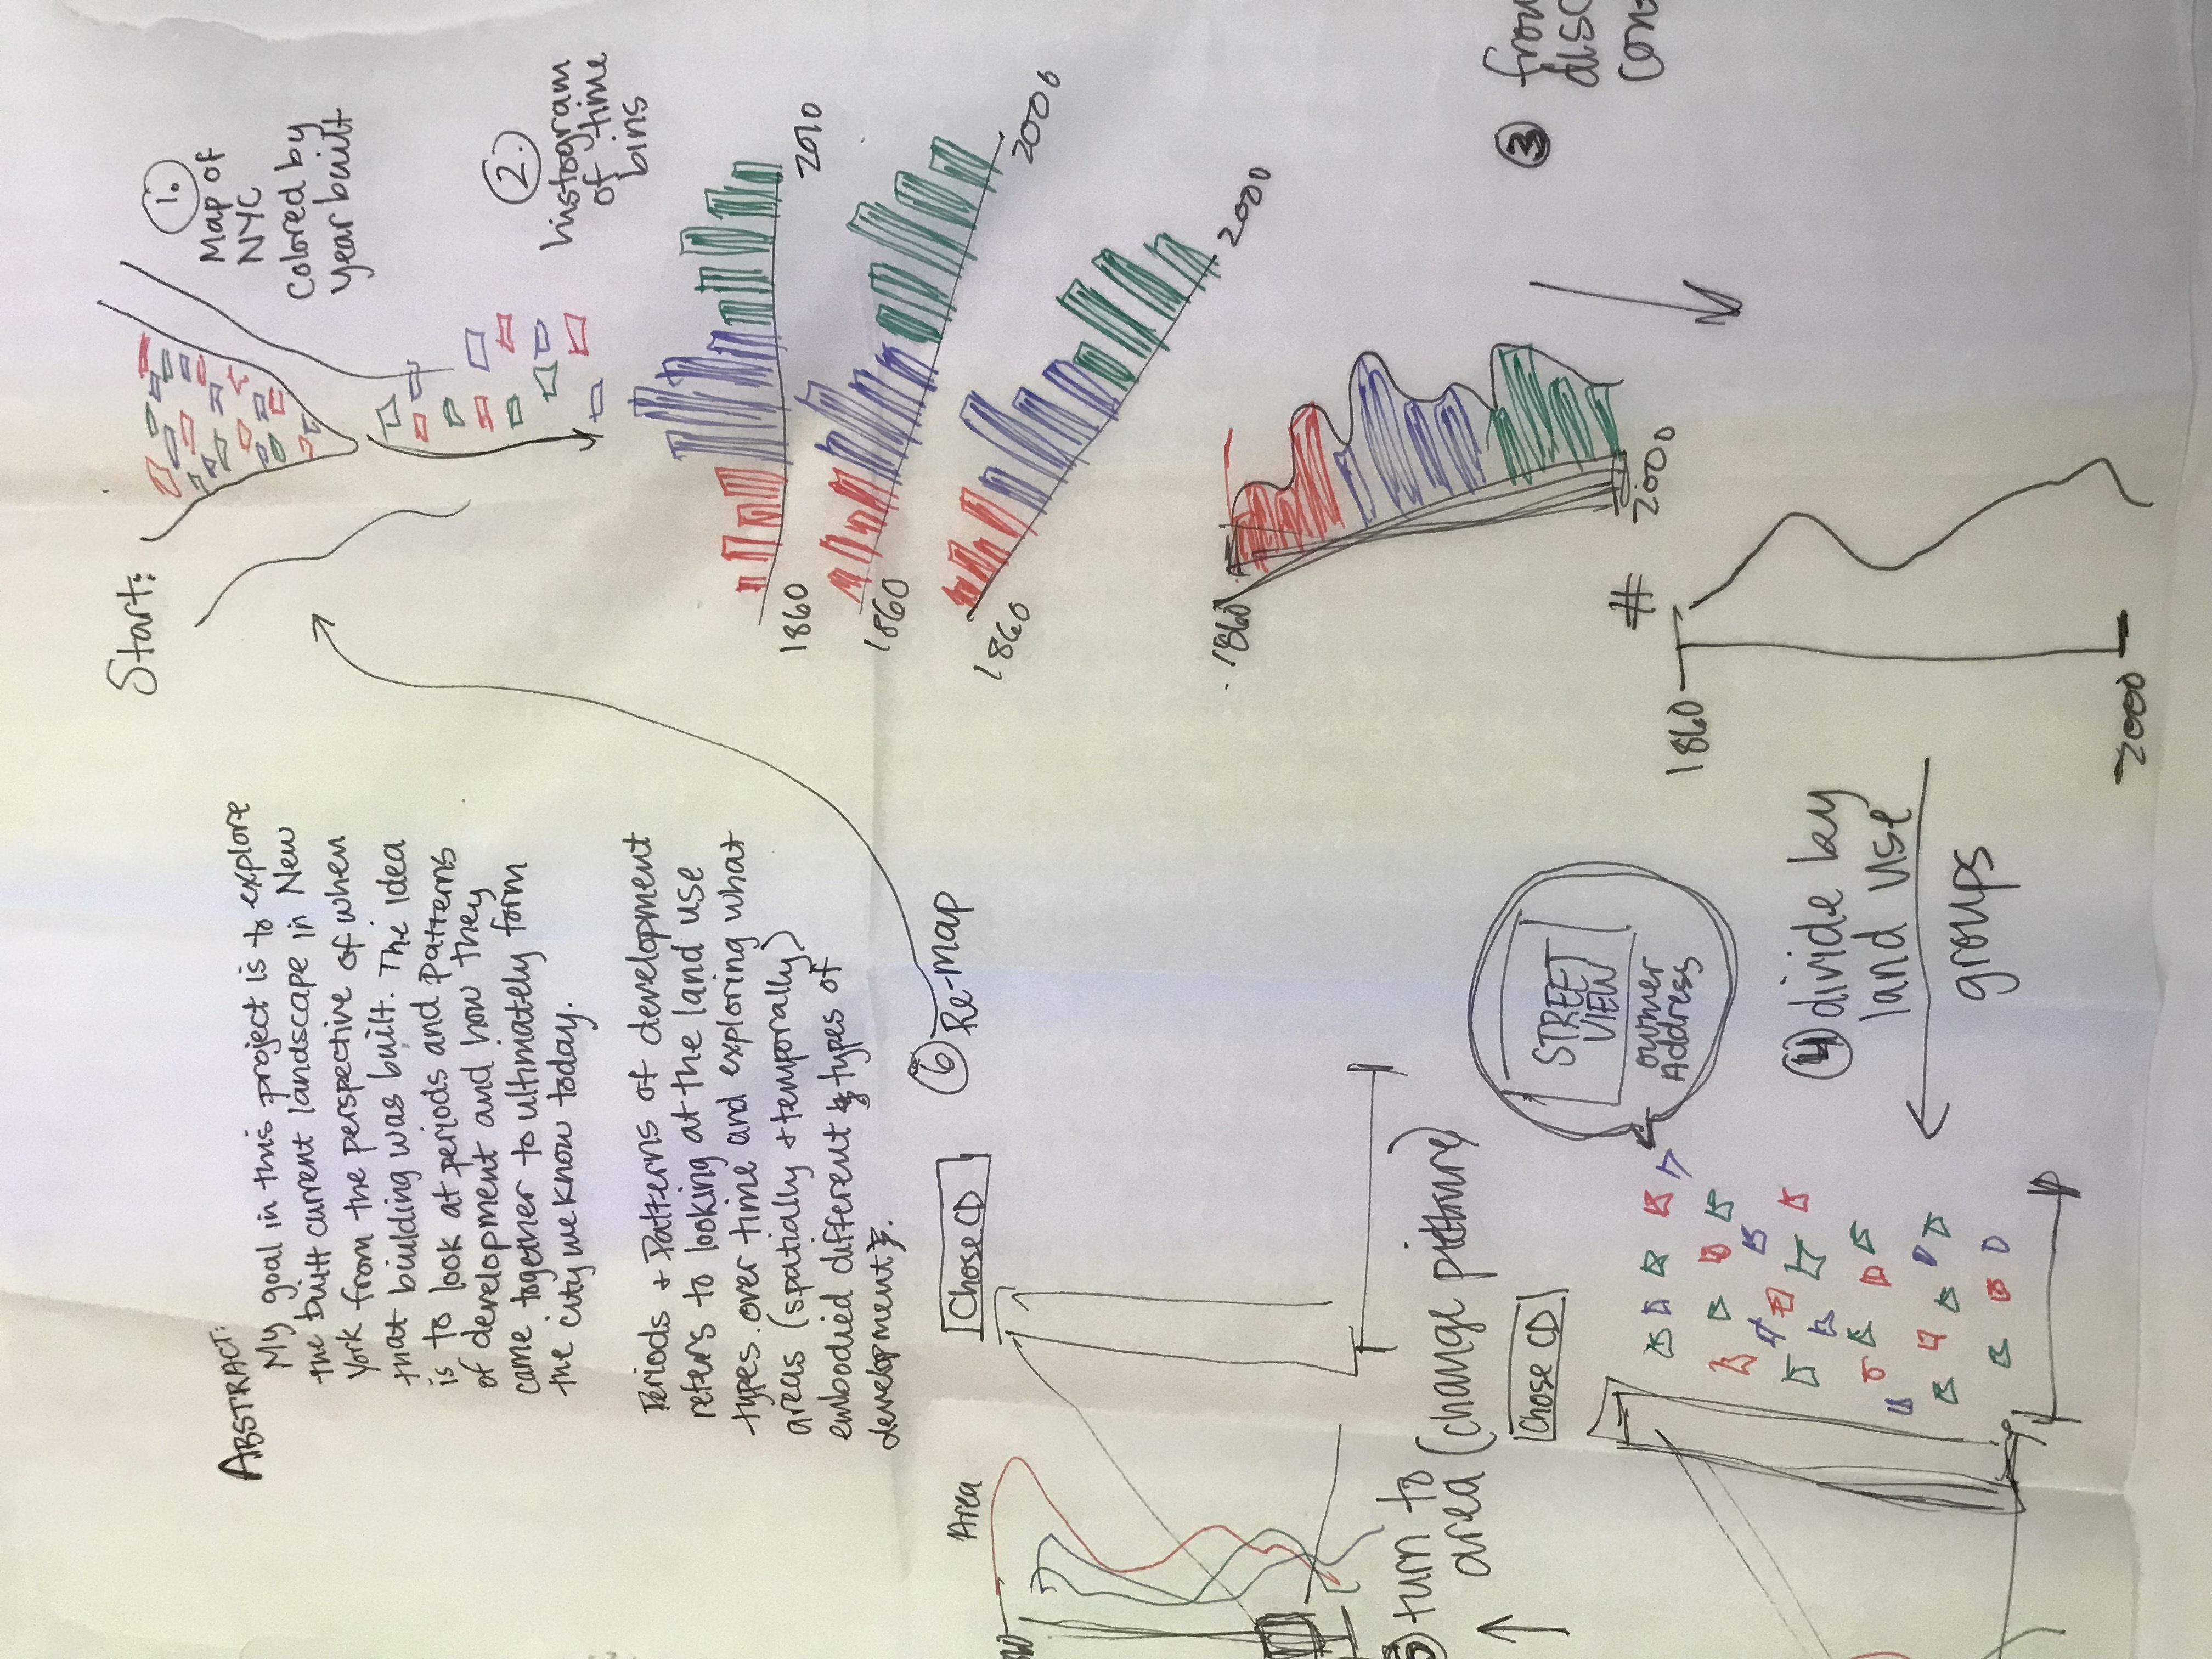 ABSTRACT:
My goal in this project is to explore
the built current landscape in New
York from the perspective of when
that biulding was built. The idea
is to look at periods and patterns
of development and how they
came together to ultimately form
the city we know today.
Periods + Patterns of development
refers to looking at the land use
types over time and exploring what
areas (spatially + temporally)
embodied different types of
development.
Start:
1.
Map of
NYC
colored by
year built
2.
histogram
of time
bins
1860
2010
1860
2000
1860
2000
1860
2000
3 from
disc
con
#
1860
2000
4 divide by
land use
groups
Chose CD
STREET
VIEW
owner
Address
5 turn to
area (change picture)
Area
Chose CD
6 Re-map